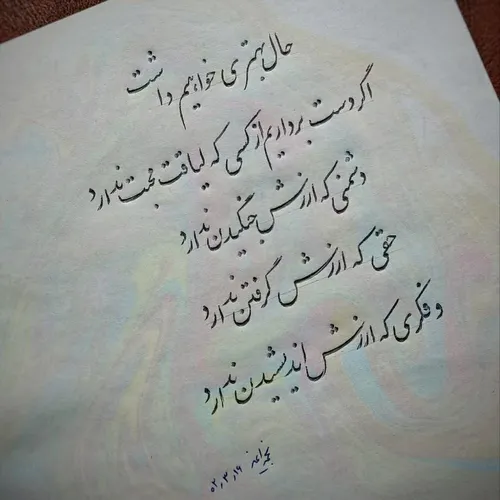 حال بهتری خواهیم داشت
اگر دست برداریم از کسی که لیاقت محبت ندارد
دشمنی که ارزش جنگیدن ندارد
حقی که ارزش گرفتن ندارد
و فکری که ارزش اندیشیدن ندارد
۰۲٫۳٫۱۶